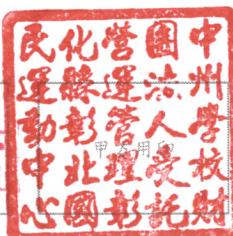 中州學校財
團法人受託
營運管理彰
化縣彰北國
民運動中心
甲方用印